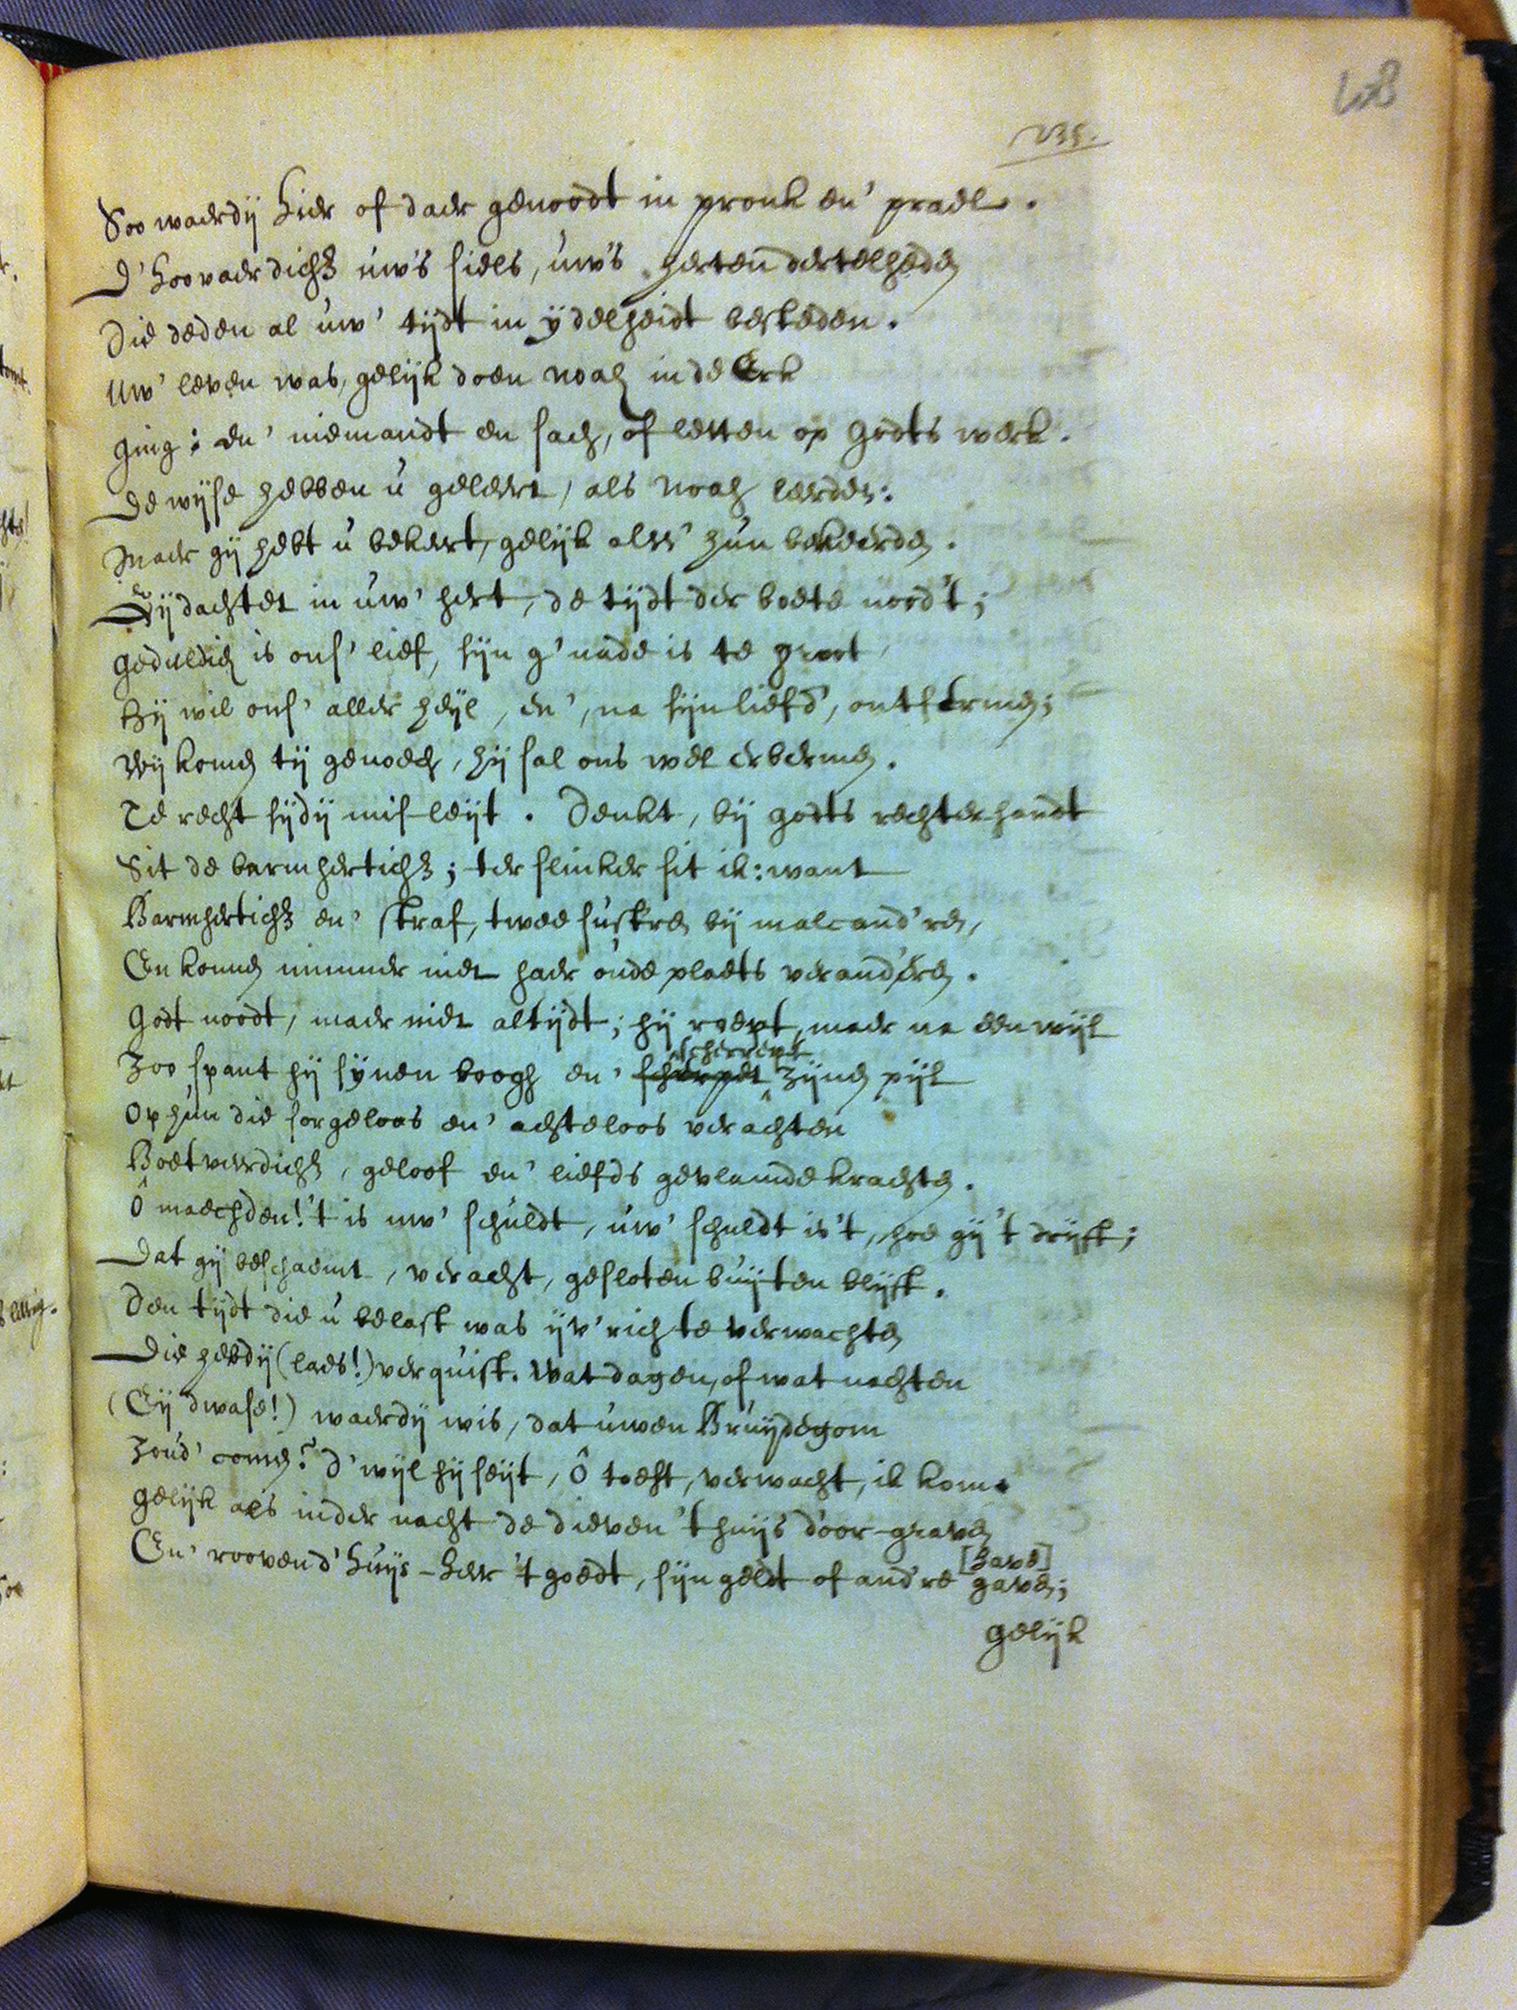 235.
Soo waerdij hier of daer genoodt in pronk en' prael.
D' hoovaerdich[eyt] uw's siels, uw's herten dertelheden
Die deden al uw' tijdt in ydelheidt besteden.
Uw' leven was, gelijk doen Noah in de Erk
ging: en' niemandt en sach, of letten op Godts werk.
De wijse hebben u geleert, als Noah leerden:
Maer gij hebt u bekeert, gelijk als' hun bekeerden.
Gij dachtet in uw' hert, de tijdt der boete nood't;
geduldich is ons' lief, sijn g'nade is te groot
Hij wil ons' aller heijl, en', na sijn liefd', ontfermen;
Wij komen tij genoech, hij sal ons wel erbermen.
Te recht sijdij misleijt. Denkt, bij godts rechterhandt
Sit de barmhertich[eyt]; ter slinker sit ik: want
Barmhertich[eyt] en' straf, twee sustren bij malcand'ren,
En konnen nimmer niet haer oude plaets verand'ren.
Godt noodt, maer niet altijdt; hij roept, maer na een wijl
Zoo spant hij sijnen boogh en' scherpet scherrept zijnen pijl
Op hun die sorgeloos en' achteloos verachten
Boetverdich[eyt], geloof en' liefds gevlamde krachten.
Ô maechden! 't is uw' schuldt, uw' schuldt is 't, hoe gij 't drijft;
Dat gij beschaemt, veracht, gesloten buijten blijft.
Den tijdt die u belast was ijv'rich te verwachten
Die hebdij (laes!) verquist. Wat dagen, of wat nachten
(Eij dwase!) waerdij wis, dat uwen Bruijdegom
Zoud' comen? d' wijl hij seijt, ô toeft, verwacht, ik kom.
gelijk als in der nacht de dieven 't huijs door-graven
En' rooven d' huijs-heer 't goedt, sijn geldt of and're [have] gaven;
gelijk